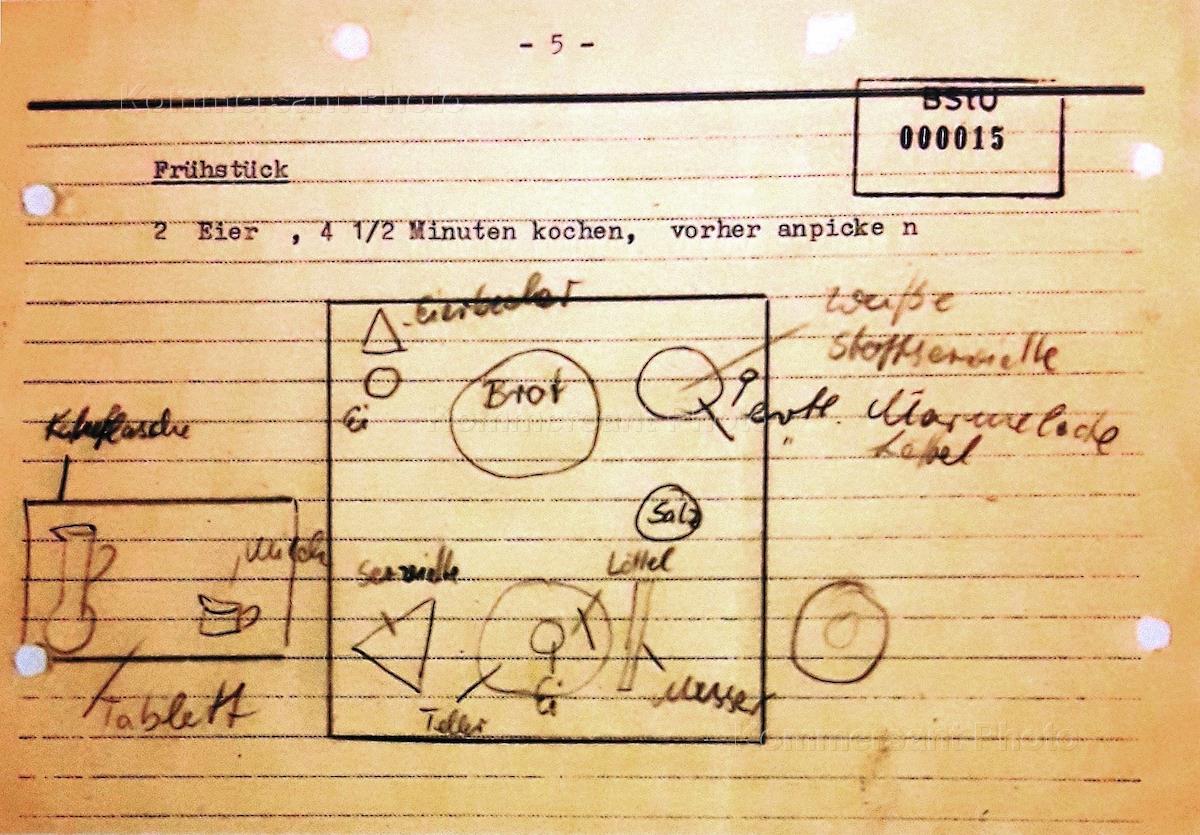 - 5 -
Kommersant Photo
BStU
000015
Frühstück
2 Eier , 4 1/2 Minuten kochen, vorher anpicke n
Eierbecher
weiße
Stoffserviette
Brot
Ei
evtl. Marmelade
" Löffel
Kommersant Photo
Salz
Milch
Serviette
Löffel
Tablett
Teller
Ei
Messer
Kommersant Photo